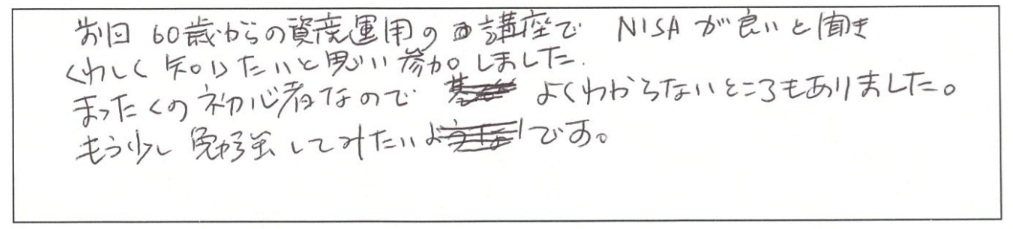 前回 60歳からの資産運用の講座で NISAが良いと聞き
くわしく知りたいと思い参加しました.
まったくの初心者なので よくわからないところもありました。
もう少し勉強してみたいです。